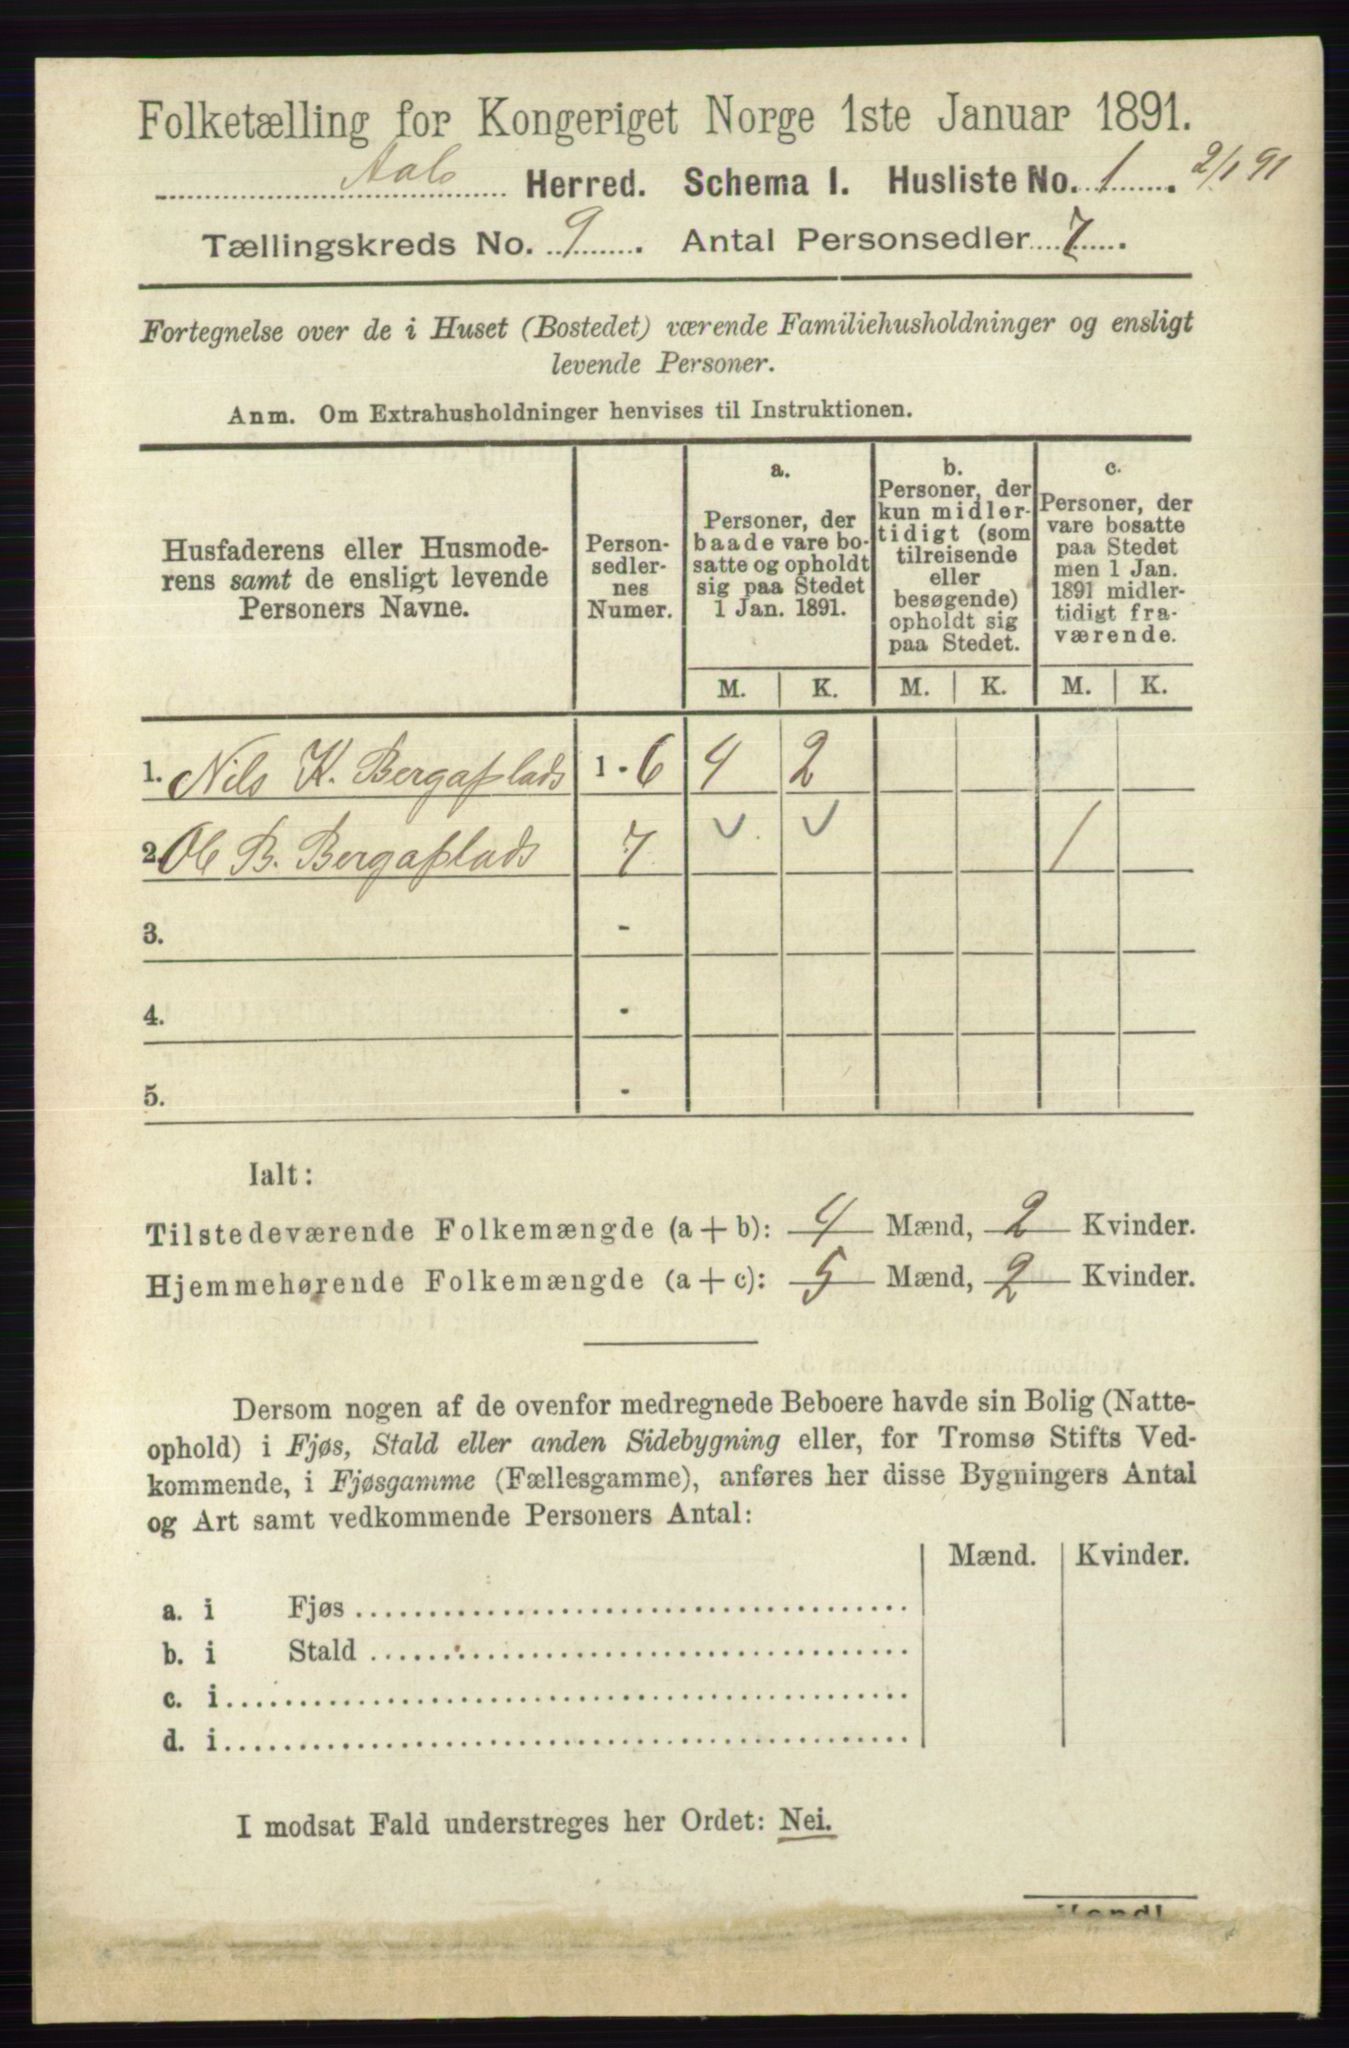 Folketælling for Kongeriget Norge 1ste Januar 1891.
Aals Herred. Schema I. Husliste No. 1. 2/1 91
Tællingskreds No. 9. Antal Personsedler 7.
Fortegnelse over de i Huset (Bostedet) værende Familiehusholdninger og ensligt
levende Personer.
Anm. Om Extrahusholdninger henvises til Instruktionen.
Husfaderens eller Husmode-
rens samt de ensligt levende
Personers Navne.
Person-
sedler-
nes
Numer.
a.
Personer, der
baade vare bo-
satte og opholdt
sig paa Stedet
1 Jan. 1891.
b.
Personer, der
kun midler-
tidigt (som
tilreisende
eller
besøgende)
opholdt sig
paa Stedet.
c.
Personer, der
vare bosatte
paa Stedet
men 1 Jan.
1891 midler-
tidigt fra-
værende.
M. K. M. K. M. K.
1. Nils K. Bergaplads 1 - 6 4 2
2. Ole B. Bergaplads 7 1
3. -
4. -
5. -
Ialt:
Tilstedeværende Folkemængde (a + b): 4 Mænd, 2 Kvinder.
Hjemmehørende Folkemængde (a + c): 5 Mænd, 2 Kvinder.
Dersom nogen af de ovenfor medregnede Beboere havde sin Bolig (Natte-
ophold) i Fjøs, Stald eller anden Sidebygning eller, for Tromsø Stifts Ved-
kommende, i Fjøsgamme (Fællesgamme), anføres her disse Bygningers Antal
og Art samt vedkommende Personers Antal:
Mænd. Kvinder.
a. i Fjøs
b. i Stald
c. i
d. i
I modsat Fald understreges her Ordet: Nei.